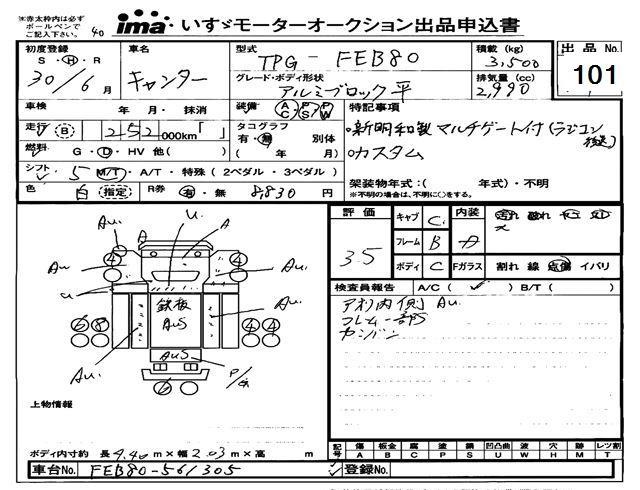 ※赤太枠内は必ず
ボールペンで
ご記入下さい。
40
ima いすゞモーターオークション出品申込書
初度登録
S・H・R
30/6月
車名
キャンター
型式
TPG-FEB80
グレード・ボディ形状
アルミブロック平
積載 (kg)
3,500
排気量 (cc)
2,990
出品No.
101
車検 年 月・抹消
走行 B 252 000km「 」
燃料 G・D・HV 他( )
シフト 5 M/T・A/T・特殊(2ペダル・3ペダル)
色 白 指定 R券 有・無 8,830 円
装備 AC PS PW
タコグラフ
有・無 別体
( 年 月)
特記事項
・新明和製マルチゲート付(ラジコン
・カスタム
架装物年式:( 年式)・不明
※不明の場合は、不明に○をする。
評価
3.5
キャブ C
フレーム B
ボディ C
内装 A
Fガラス
割れ 線 点傷 イバリ
検査員報告 A/C( ✓ ) B/T( )
アオリ内側 Au.
フレーム一部S
カンバン
Au. A U. A
4 4
Au. Au.
u
鉄板
AuS
6 8 4 4
AuS
Au. Au.
P/G
6
上物情報
ボディ内寸約 長 4.40 m×幅 2.03 m×高 m
車台No. FEB80-561305
記号 傷 板金 腐 塗 錆 凹凸曲 波 穴 跡 レツ割
A B C P S U W H M T
登録No.